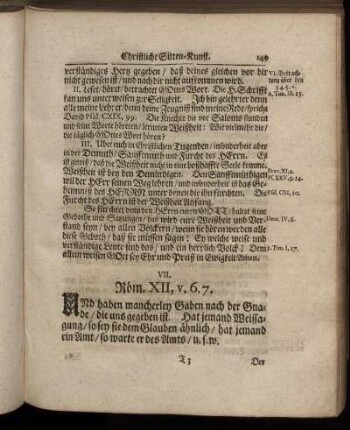 Christliche Sitten-Kunst. 149
verständiges Hertz gegeben / daß deines gleichen vor dir
nicht gewesen ist / und nach dir nicht aufkommen wird.
II. Leset / höret / betrachtet GOttes Wort. Die H. Schrifft
kan uns unterweisen zur Seligkeit. Ich bin gelehrter denn
alle meine Lehrer denn deine Zeugniß sind meine Rede / spricht
David Psal. CXIX, 99. Die Knechte die vor Salomo stunden
und seine Worte höreten / lerneten Weißheit: Wie vielmehr die /
die täglich GOttes Wort hören?
III. Ubet euch in Christlichen Tugenden / insonderheit aber
in der Demuth / Sanfftmuth und Furcht des HErrn. Es
ist gewiß / daß die Weißheit nicht in eine boßhaffte Seele komme.
Weißheit ist bey den Demüthigen. Den Sanfftmüthigen
wil der HErr seinen Weg lehren / und insonderheit ist das Ge-
heimniß des HERRN unter denen die ihn fürchten. Die
Furcht des HErrn ist der Weißheit Anfang.
So fürchtet denn den HErrn euern GOTT / haltet seine
Gebothe und Satzungen / das wird eure Weißheit und Ver-
stand seyn / bey allen Völckern / wenn sie hören werden alle
diese Geboth / daß sie müssen sagen: Ey welche weise und
verständige Leute sind das / und ein herrlich Volck! Dem
allein weisen GOtt sey Ehr und Preiß in Ewigkeit Amen.
VI. Betrach-
tung über den
2. Tim. III. 15.
Prov. XI, 2.
Psal. CXI, 10.
Deut. IV, 6.
1. Tim. I, 17.
VII.
Röm. XII, v. 6. 7.
UNd haben mancherley Gaben nach der Gna-
de / die uns gegeben ist. Hat jemand Weissa-
gung / so sey sie dem Glauben ähnlich / hat jemand
ein Amt / so warte er des Amts / u. s. w.
T 3 Der